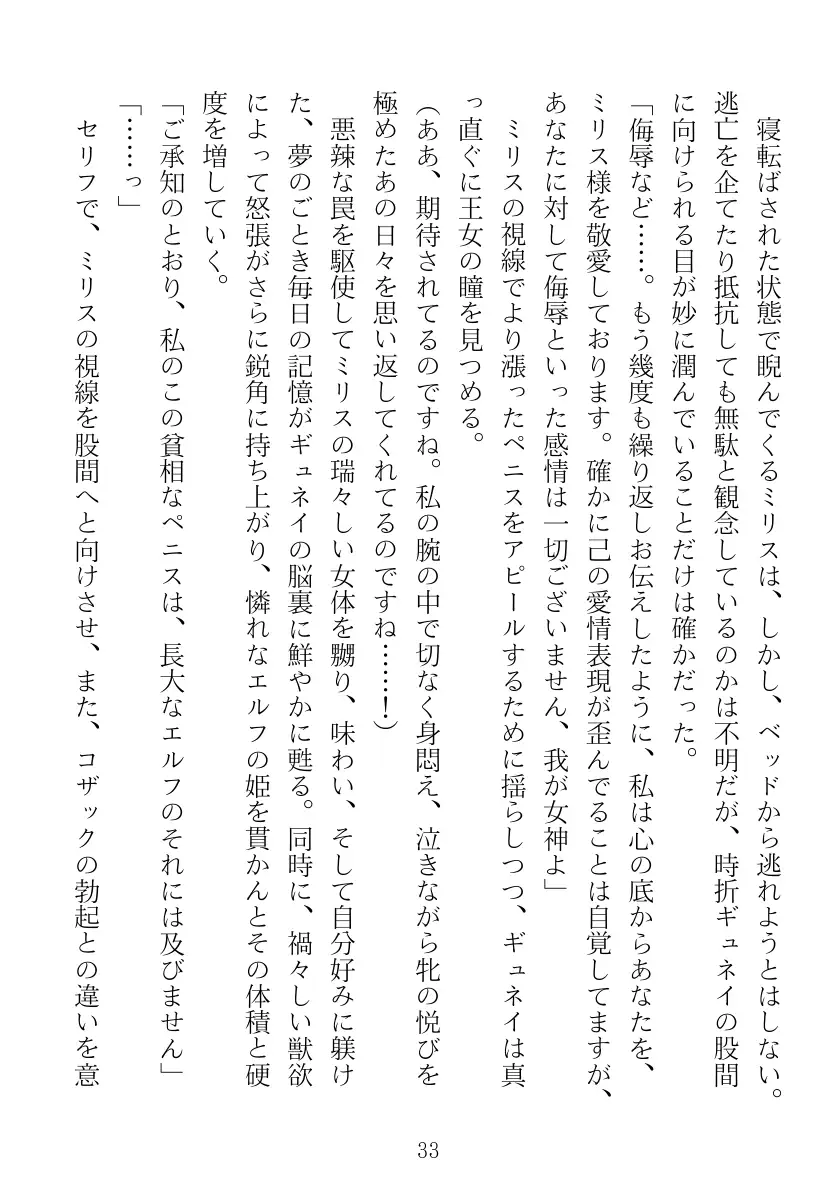 寝転ばされた状態で睨んでくるミリスは、しかし、ベッドから逃れようとはしない。
逃亡を企てたり抵抗しても無駄と観念しているのかは不明だが、時折ギュネイの股間
に向けられる目が妙に潤んでいることだけは確かだった。
「侮辱など……。もう幾度も繰り返しお伝えしたように、私は心の底からあなたを、
ミリス様を敬愛しております。確かに己の愛情表現が歪んでることは自覚してますが、
あなたに対して侮辱といった感情は一切ございません、我が女神よ」
　ミリスの視線でより漲ったペニスをアピールするために揺らしつつ、ギュネイは真
っ直ぐに王女の瞳を見つめる。
（ああ、期待されてるのですね。私の腕の中で切なく身悶え、泣きながら牝の悦びを
極めたあの日々を思い返してくれてるのですね……！）
　悪辣な罠を駆使してミリスの瑞々しい女体を嬲り、味わい、そして自分好みに躾け
た、夢のごとき毎日の記憶がギュネイの脳裏に鮮やかに甦る。同時に、禍々しい獣欲
によって怒張がさらに鋭角に持ち上がり、憐れなエルフの姫を貫かんとその体積と硬
度を増していく。
「ご承知のとおり、私のこの貧相なペニスは、長大なエルフのそれには及びません」
「……っ」
　セリフで、ミリスの視線を股間へと向けさせ、また、コザックの勃起との違いを意
33